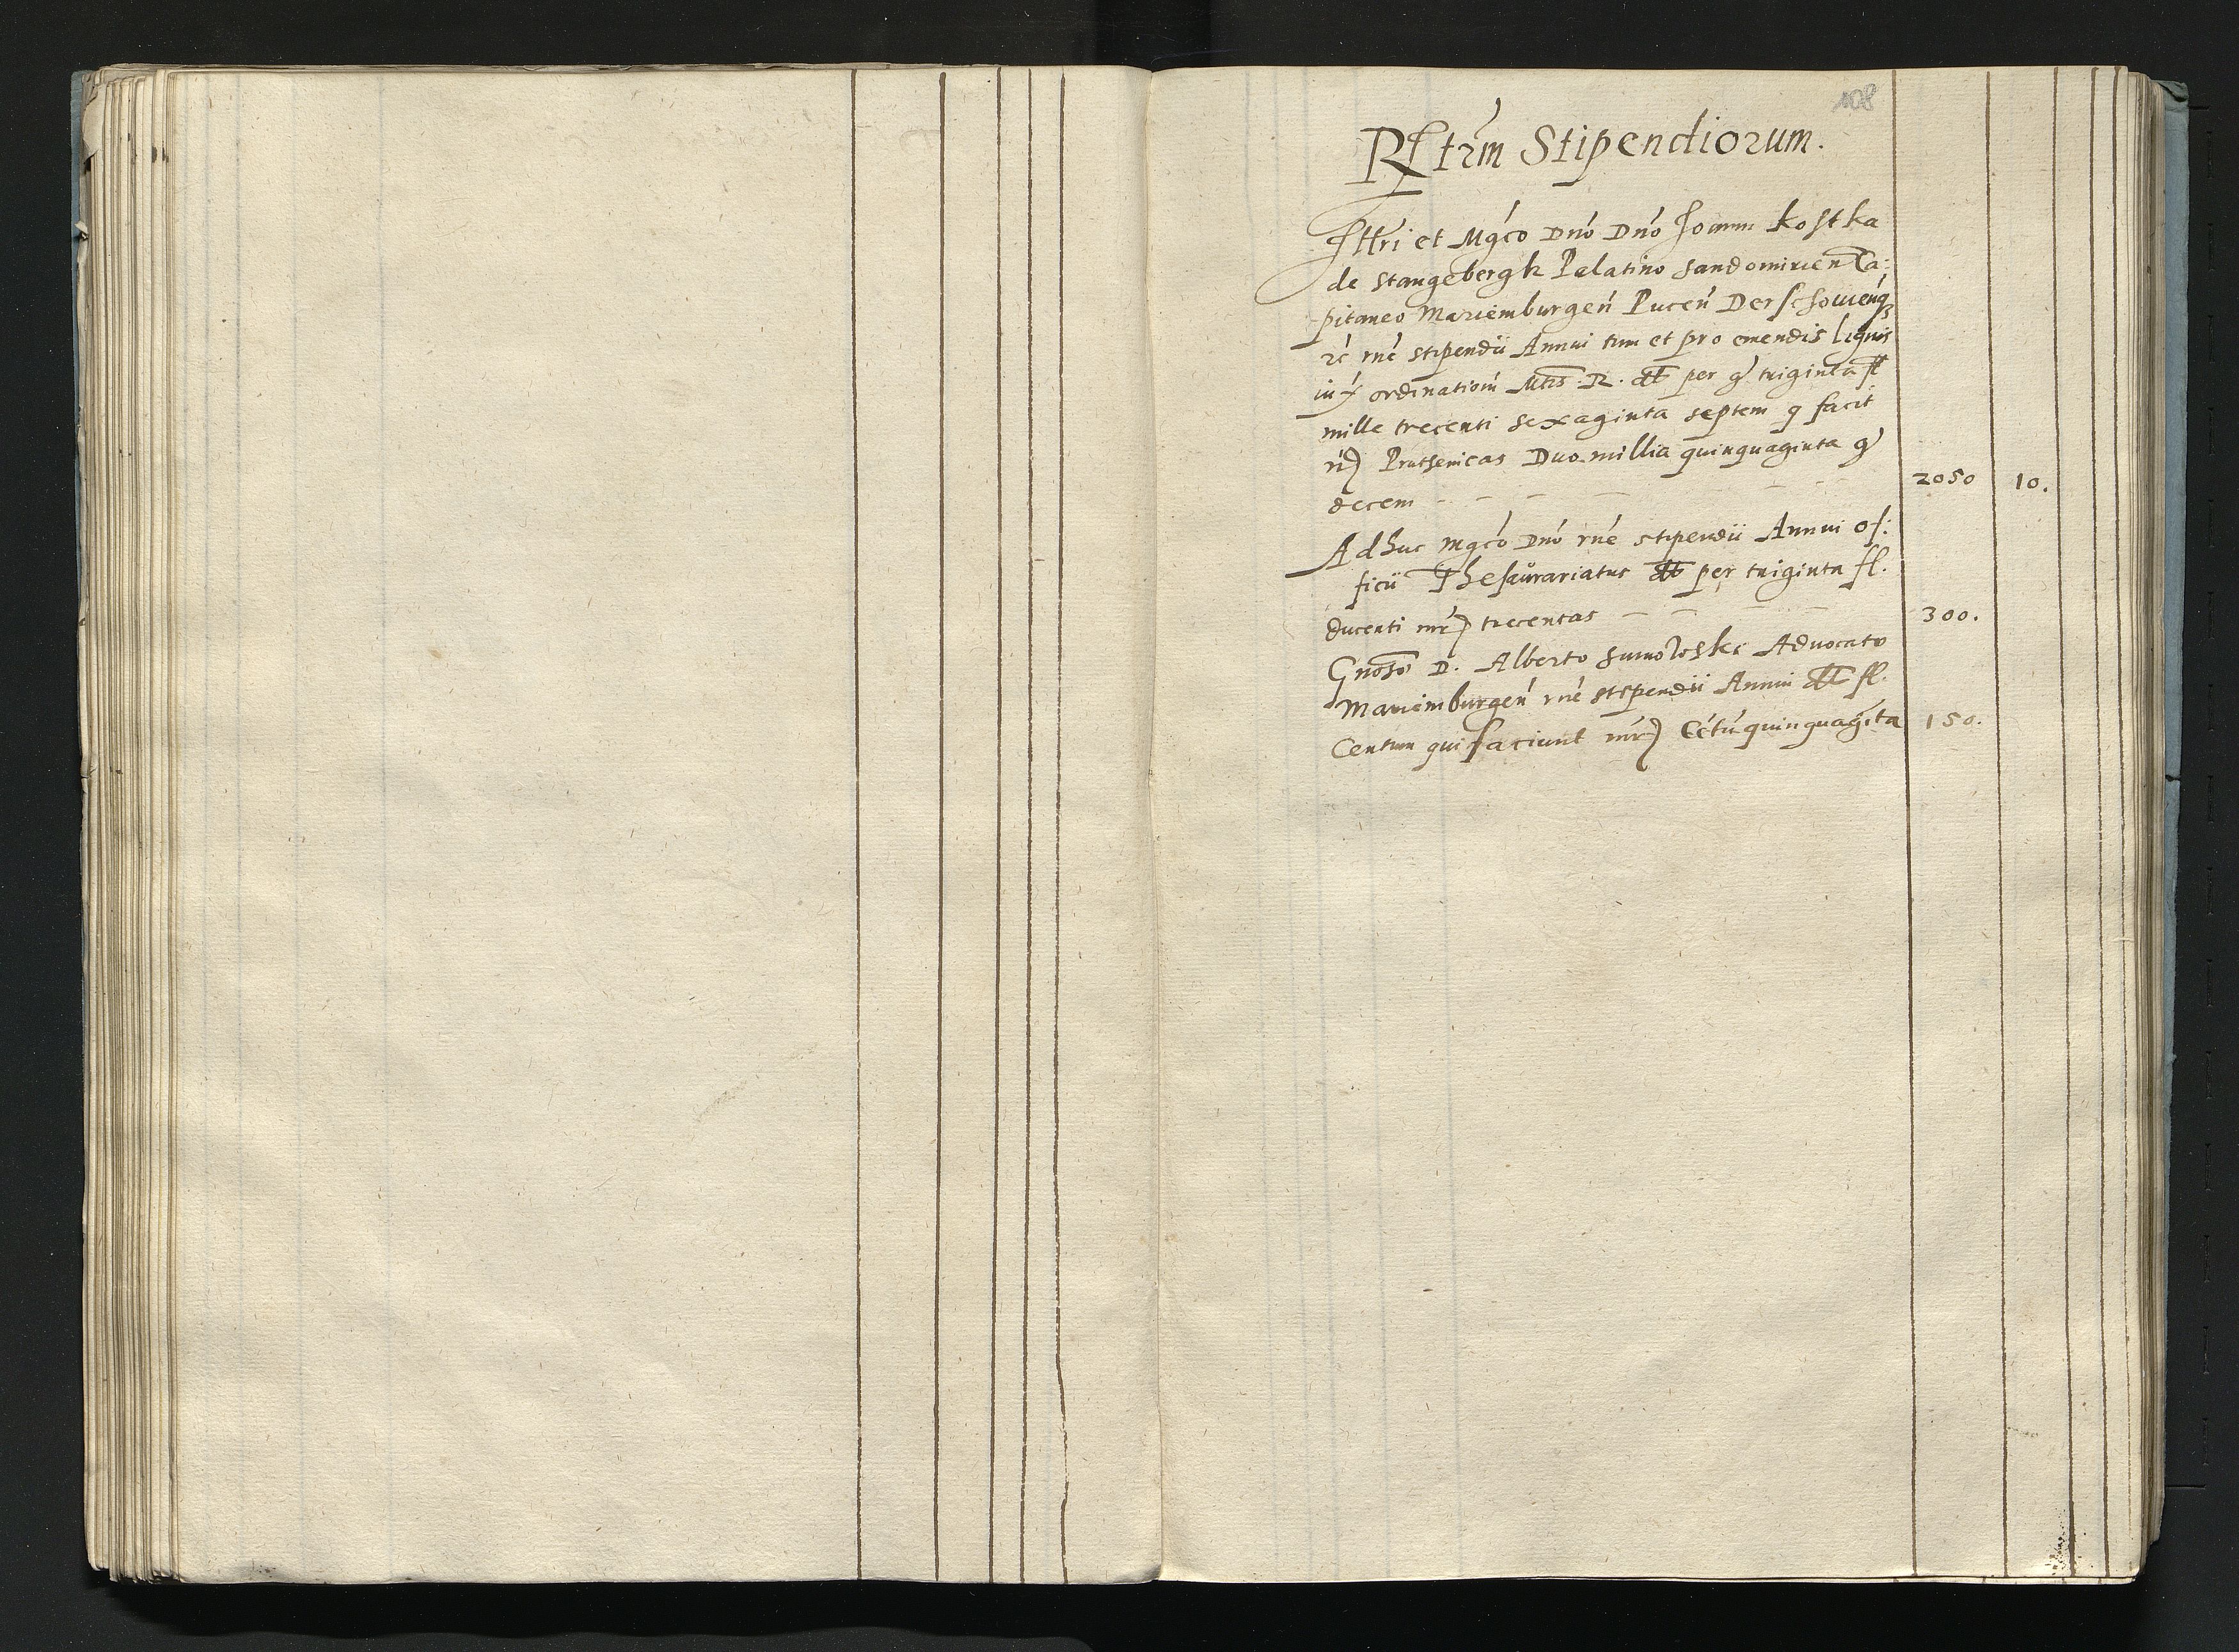 108
Rstrm Stipendiorum.
Illri et Mgco Dno Dno Joanni Kostka
de Stangebergk Palatino Sandomirien Ca:
pitaneo Mariemburgen Pucen Derschouienq
rne stipendii Annui tum et pro emendis lignis
iux ordination Mtis R. dt per g triginta fl
mille trecenti sexaginta septem q facit
Prutenicas Duo millia quinquaginta g
decem 2050 10.
Adhuc Mgco Dno rne stipendii Annui of:
ficii Thesaurariatus dt per triginta fl.
ducenti mr trecentas 300.
Gnoso D. Alberto Aduocato
Mariemburgen rne stipendii Annui dt fl.
Centum qui faciunt mr Cetu quinquagita 150.